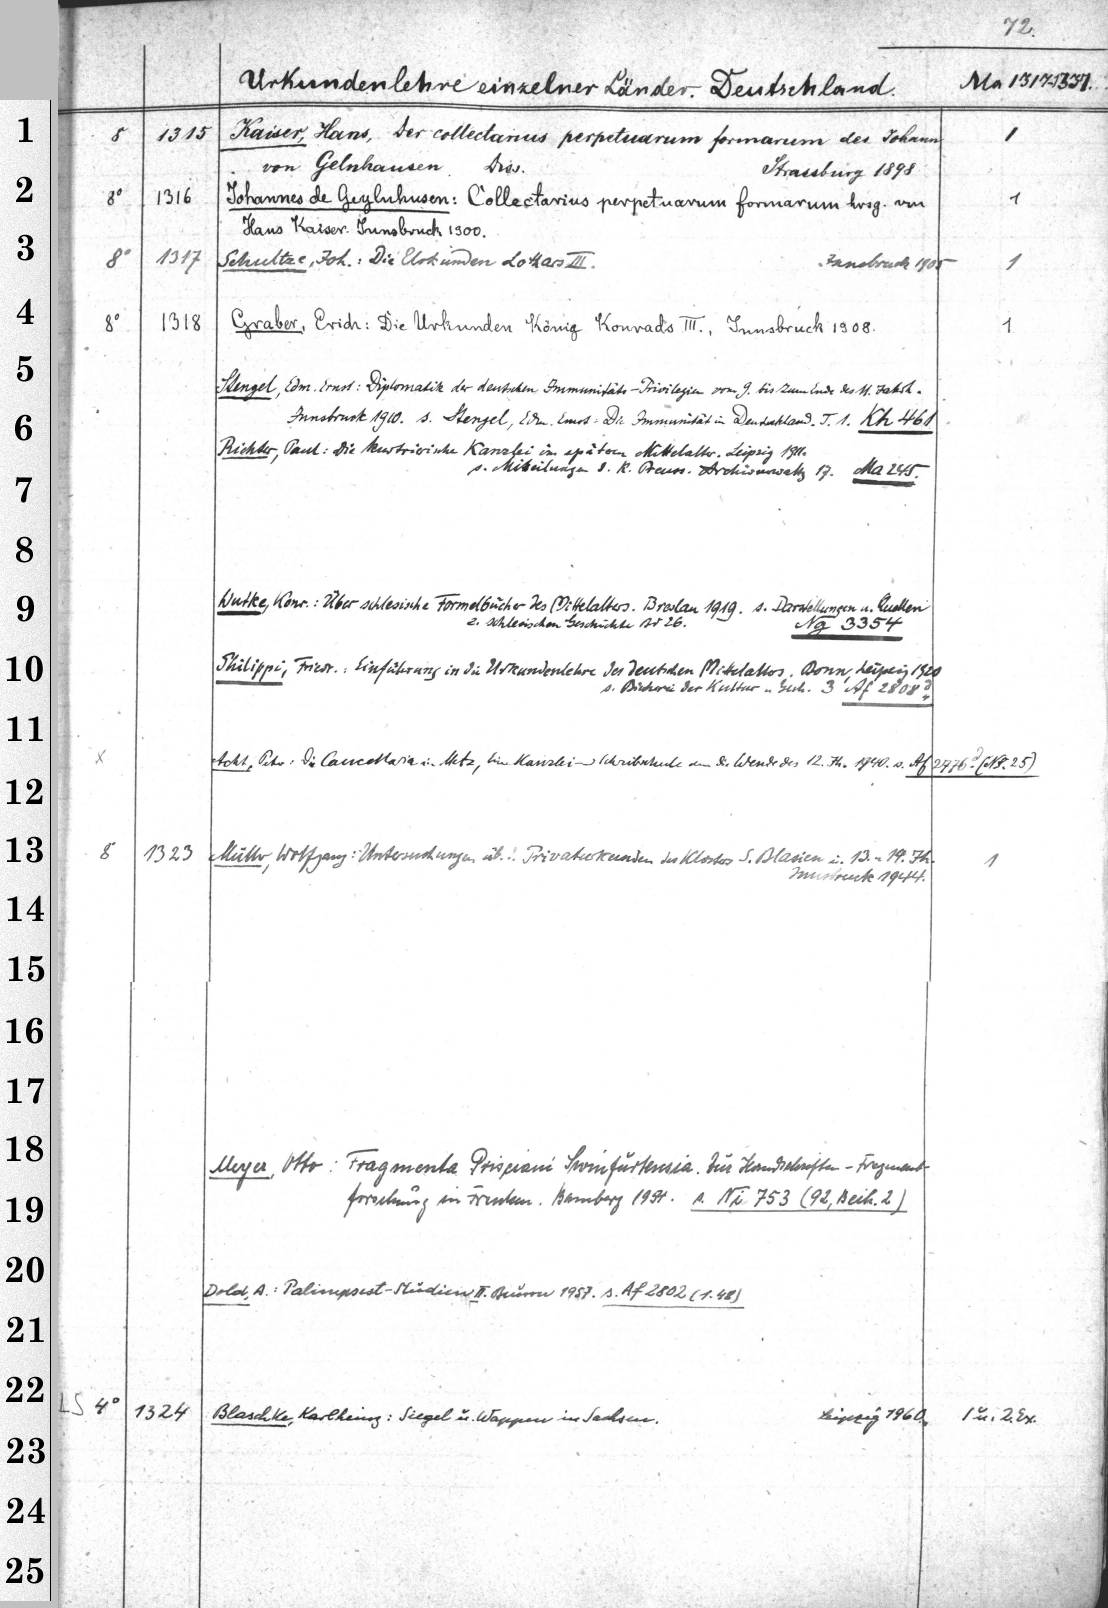 72.
Urkundenlehre einzelner Länder. Deutschland. Ma 1317-1337.
1
8 1315 Kaiser, Hans, Der collectarius perpetuarum formarum des Johann 1
von Gelnhausen Diss. Strassburg 1898
2
8° 1316 Johannes de Geylnhusen: Collectarius perpetuarum formarum hrsg. von 1
Hans Kaiser. Innsbruck 1900.
3
8° 1317 Schultze, Joh.: Die Urkunden Lothars III. Innsbruck 1905 1
4
8° 1318 Graber, Erich: Die Urkunden König Konrads III., Innsbruck 1908. 1
5
Stengel, Edm. Ernst: Diplomatik der deutschen Immunitäts-Privilegien vom 9. bis zum Ende des 11. Jahrh.
6
Innsbruck 1910. s. Stengel, Edm. Ernst: Die Immunität in Deutschland. T. 1. Kh 461
Richter, Paul: Die kurtrierische Kanzlei im späten Mittelalter. Leipzig 1911.
s. Mitteilungen d. K. Preuss. Archivverwaltg 17. Ma 245.
7
8
9
Wutke, Konr.: Über schlesische Formelbücher des Mittelalters. Breslau 1919. s. Darstellungen u. Quellen
z. schlesischen Geschichte Bd 26. Ng 3354
10
Philippi, Friedr.: Einführung in die Urkundenlehre des deutschen Mittelalters. Bonn, Leipzig 1920
s. Bücherei der Kultur u. Gesch. 3 Af 2808
11
x Acht, Peter: Die Cancellaria in Metz, eine Kanzlei- u. Schreibschule um die Wende des 12. Jh. 1940. s. Af 2776 (NF. 25)
12
13
8 1323 Müller, Wolfgang: Untersuchungen üb. d. Privaturkunden des Klosters S. Blasien i. 13. u. 14. Jh. 1
Innsbruck 1944.
14
15
16
17
18
Meyer, Otto: Fragmenta Prisciani Swinfurtensia. Zur Handschriften-Fragment-
19
forschung in Franken. Bamberg 1954. s. Ni 753 (92, Beih. 2)
20
Dold, A.: Palimpsest-Studien II. Beuron 1957. s. Af 2802 (1.48)
21
22
LS 4° 1324 Blaschke, Karlheinz: Siegel u. Wappen in Sachsen. Leipzig 1960. 1 u. 2. Ex.
23
24
25